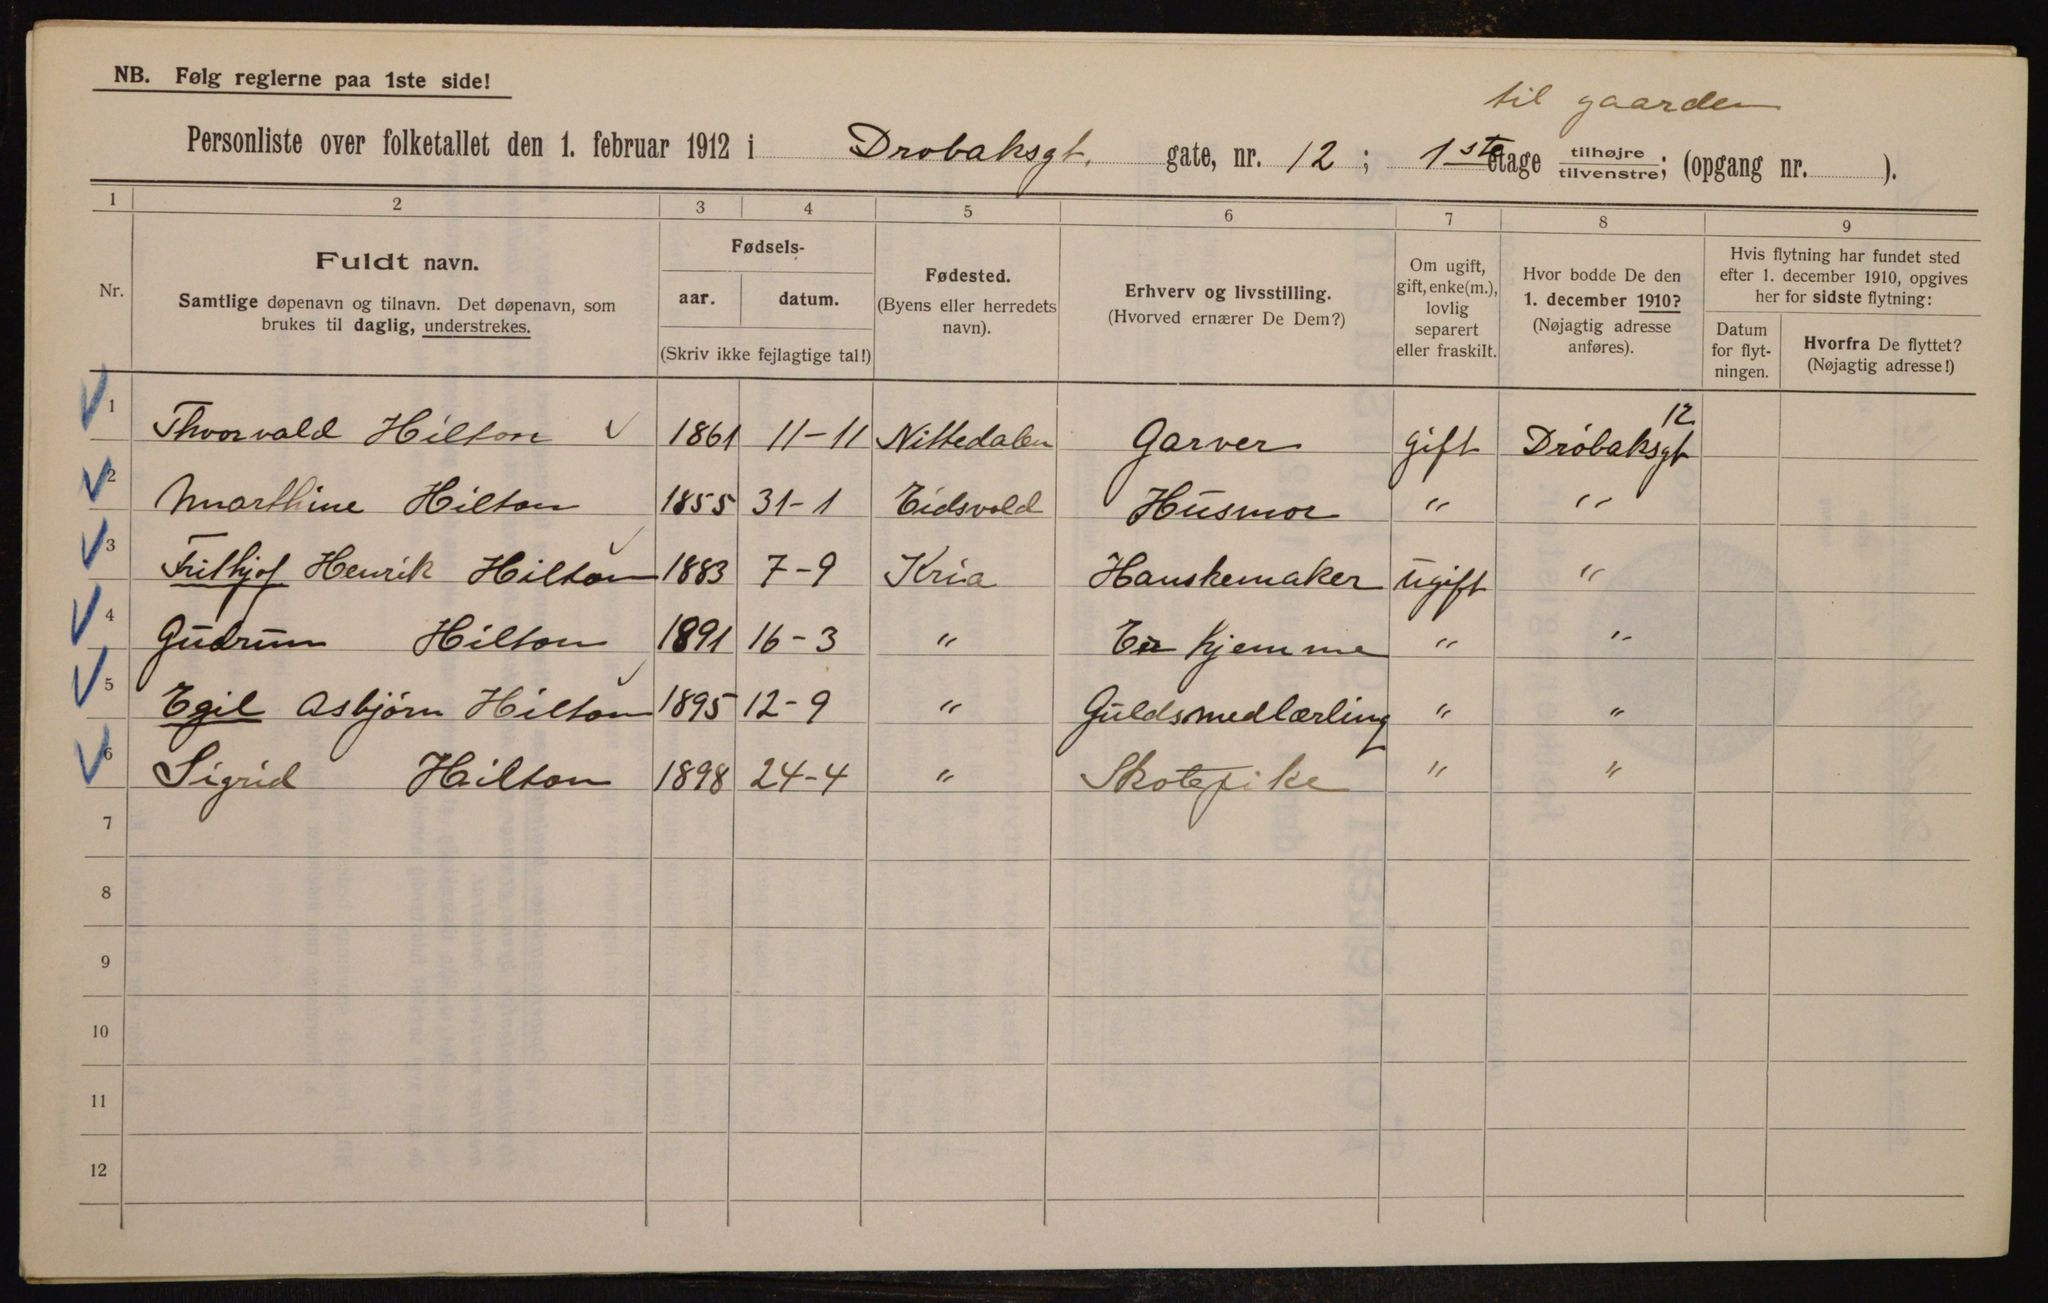 NB. Følg reglerne paa 1ste side!
til gaarden
Personliste over folketallet den 1. februar 1912 i Drobaksgt. gate, nr. 12; 1ste etage tilhøjre/tilvenstre; (opgang nr. ).
1 2 3 4 5 6 7 8 9
Nr.
Fuldt navn.
Samtlige døpenavn og tilnavn. Det døpenavn, som
brukes til daglig, understrekes.
Fødsels-
aar. datum.
(Skriv ikke fejlagtige tal!)
Fødested.
(Byens eller herredets
navn).
Erhverv og livsstilling.
(Hvorved ernærer De Dem?)
Om ugift,
gift, enke(m.),
lovlig
separert
eller fraskilt.
Hvor bodde De den
1. december 1910?
(Nøjagtig adresse
anføres).
Hvis flytning har fundet sted
efter 1. december 1910, opgives
her for sidste flytning:
Datum
for flyt-
ningen.
Hvorfra De flyttet?
(Nøjagtig adresse!)
1 Thorvald Hilton 1861 11-11 Nittedalen Garver gift Dröbaksgt 12
2 Marthine Hilton 1855 31-1 Eidsvold Husmor " "
3 Frithjof Henrik Hilton 1883 7-9 Kria Hanskemaker ugift "
4 Gudrun Hilton 1891 16-3 " Er hjemme " "
5 Egil Asbjørn Hilton 1895 12-9 " Guldsmedlærling " "
6 Sigrid Hilton 1898 24-4 " Skolepike " "
7
8
9
10
11
12